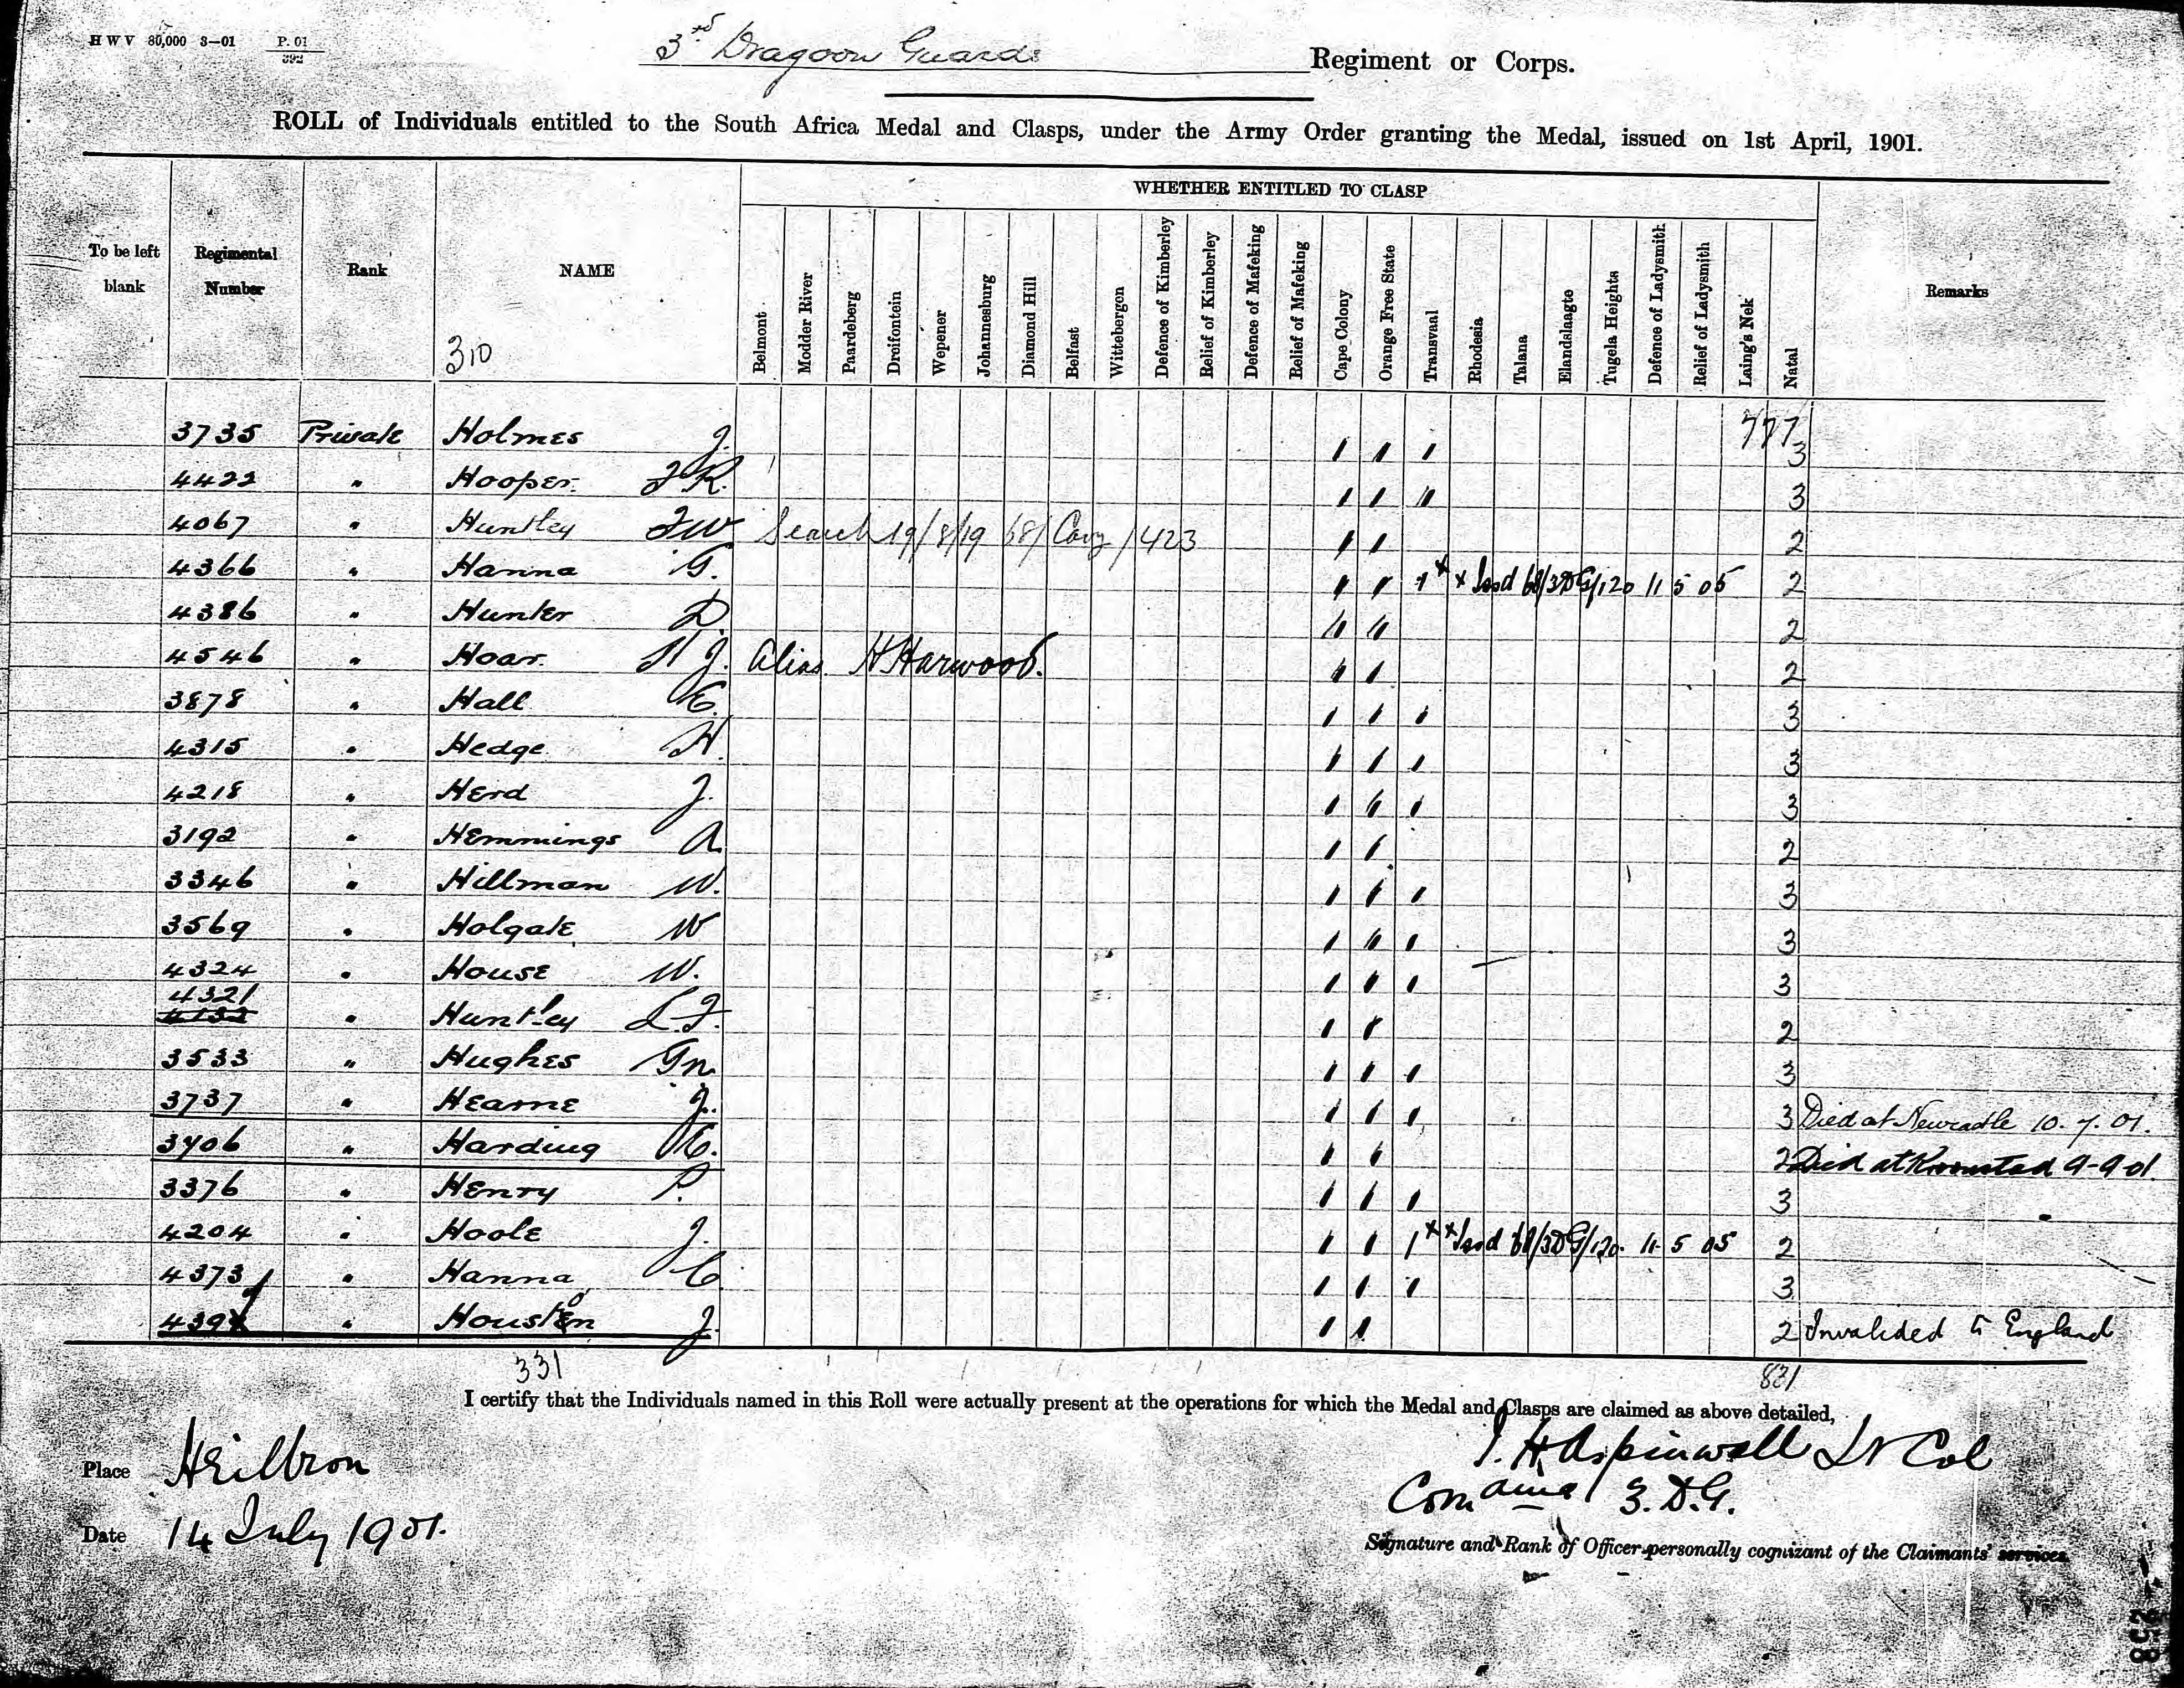 H W V 80,000 3—01 P. 01/392
3rd Dragoon Guards Regiment or Corps.
ROLL of Individuals entitled to the South Africa Medal and Clasps, under the Army Order granting the Medal, issued on 1st April, 1901.
WHETHER ENTITLED TO CLASP
To be left blank Regimental Number Rank NAME Belmont Modder River Paardeberg Dreifontein Wepener Johannesburg Diamond Hill Belfast Wittebergen Defence of Kimberley Relief of Kimberley Defence of Mafeking Relief of Mafeking Cape Colony Orange Free State Transvaal Rhodesia Talana Elandslaagte Tugela Heights Defence of Ladysmith Relief of Ladysmith Laing's Nek Natal Remarks
310
777
3735 Private Holmes J. 1 1 1 3
4422 " Hooper J R. 1 1 11 3
4067 " Huntley F W Search 19/8/19 68/Cavy/423 1 1 2
4366 " Hanna G. 1 1 1 x x Issd 68/3DG/120 11 5 05 2
4386 " Hunter D. 11 11 2
4546 " Hoar H J. Alias H Harwood. 1 1 2
3878 " Hall E. 1 1 1 3
4315 " Hedge H. 1 1 1 3
4218 " Herd J. 1 1 1 3
3192 " Hemmings A. 1 1 2
3346 " Hillman W. 1 1 1 3
3569 " Holgate W 1 11 1 3
4324 " House W. 1 1 1 3
4321
4132 " Huntley L. F. 1 1 2
3533 " Hughes Gn. 1 1 1 3
3737 " Hearne J. 1 1 1 3 Died at Newcastle 10. 7. 01.
3406 " Harding C. 1 1 2 Died at Kroonstad 9-9-01.
3376 " Henry P. 1 1 1 3
4204 " Hoole J. 1 1 1 x x Issd 68/3DG/120. 11 5 05 2
4373 " Hanna C. 1 1 1 3
439 " Houston J. 1 1 2 Invalided to England
331 831
I certify that the Individuals named in this Roll were actually present at the operations for which the Medal and Clasps are claimed as above detailed,
Place Heilbron
J. H Aspinwall Lt Col
Comdng 3. D.G.
Date 14 July 1901.
Signature and Rank of Officer personally cognizant of the Claimants' services.
258